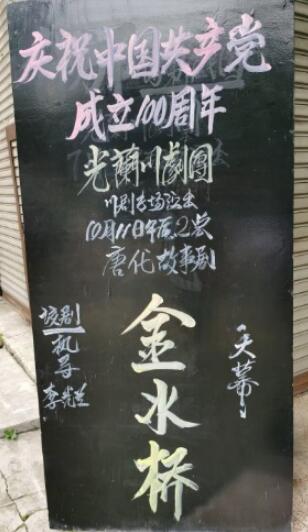 庆祝中国共产党
成立100周年
光蘭川劇團
川剧专场演出
10月11日午后2点
唐代故事剧
金水桥
天幕
该剧
机导
李先兰